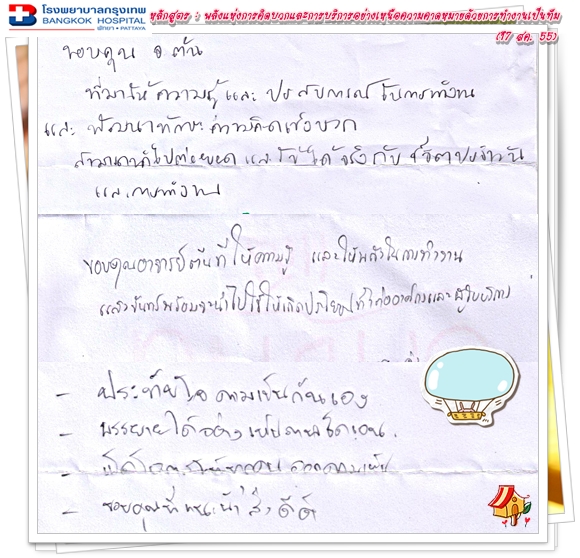 โรงพยาบาลกรุงเทพ
BANGKOK HOSPITAL
พัทยา • PATTAYA
หลักสูตร : พลังแห่งการคิดบวกและการบริการอย่างเหนือความคาดหมายด้วยการทำงานเป็นทีม
(17 สค. 55)
ขอบคุณ อ ต้น
ที่มาให้ความรู้และ ประสบการณ์ ในการทำงาน
และ พัฒนาทักษะความคิดเชิงบวก
สามารถนำไปต่อยอด และใช้ได้จริงกับ ชีวิตประจำวัน
และการทำงาน
ขอบคุณอาจารย์ต้นที่ให้ความรู้ และให้พลังในการทำงาน
พร้อมจะนำไปใช้ให้เกิดประโยชน์ต่อองค์กรและผู้ใช้บริการ
- ประทับใจ ความเป็นกันเอง
- บรรยายได้อย่าง
-
- ขอบคุณที่แนะนำสิ่งดีๆ